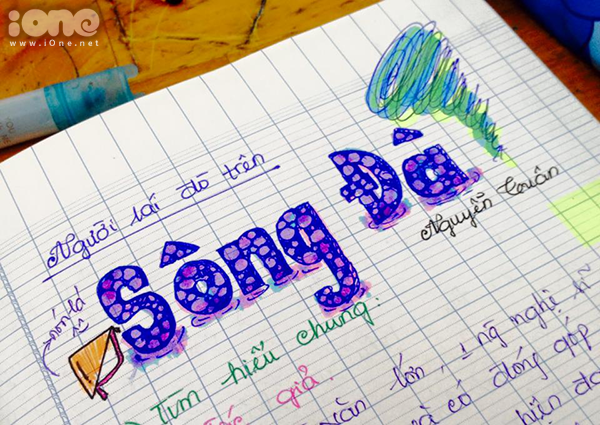 ione
www.iOne.net
Người lái đò trên
Sông Đà
Nguyễn Tuân
nón lá
Tìm hiểu chung:
Tác giả.
văn lớn, 1 ng nghệ sĩ
và có đóng góp
hiện đ